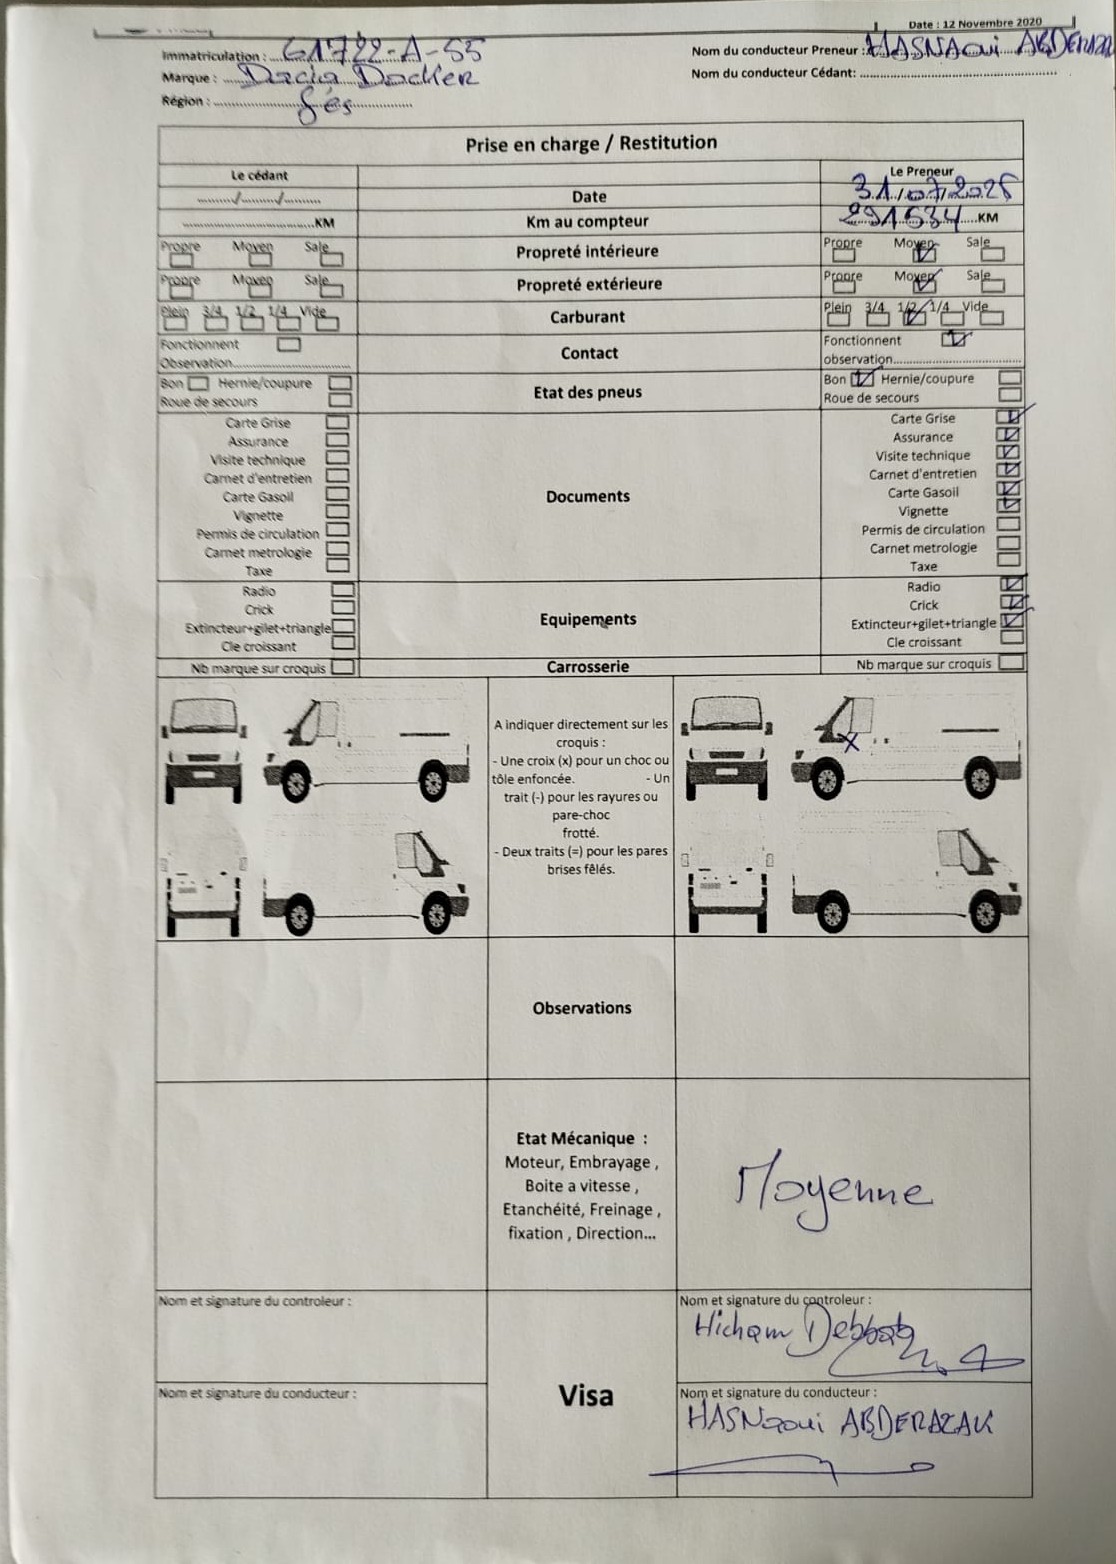 Date : 12 Novembre 2020
Immatriculation : 61722-A-55
Nom du conducteur Preneur : HASNAoui ABDERAZAK
Marque : Dacia Docker
Nom du conducteur Cédant:
Région : fés
Prise en charge / Restitution
Le cédant
Le Preneur
....../....../...... Date 31/07/2025
KM Km au compteur 291634 KM
Propre Moyen Sale Propreté intérieure Propre Moyen Sale
Propre Moyen Sale Propreté extérieure Propre Moyen Sale
Plein 3/4 1/2 1/4 Vide Carburant Plein 3/4 1/2 1/4 Vide
Fonctionnent Contact Fonctionnent
Observation observation
Bon Hernie/coupure Etat des pneus Bon Hernie/coupure
Roue de secours Roue de secours
Carte Grise
Assurance
Visite technique
Carnet d'entretien
Carte Gasoil
Vignette
Permis de circulation
Carnet metrologie
Taxe
Documents
Carte Grise
Assurance
Visite technique
Carnet d'entretien
Carte Gasoil
Vignette
Permis de circulation
Carnet metrologie
Taxe
Radio
Crick
Extincteur+gilet+triangle
Cle croissant
Equipements
Radio
Crick
Extincteur+gilet+triangle
Cle croissant
Nb marque sur croquis Carrosserie Nb marque sur croquis
A indiquer directement sur les
croquis :
- Une croix (x) pour un choc ou
tôle enfoncée. - Un
trait (-) pour les rayures ou
pare-choc
frotté.
- Deux traits (=) pour les pares
brises fêlés.
x
Observations
Etat Mécanique :
Moteur, Embrayage ,
Boite a vitesse ,
Etanchéité, Freinage ,
fixation , Direction...
Moyenne
Nom et signature du controleur :
Nom et signature du conducteur :
Visa
Nom et signature du controleur :
Hicham Debbab
Nom et signature du conducteur :
HASNaoui ABDERAZAK